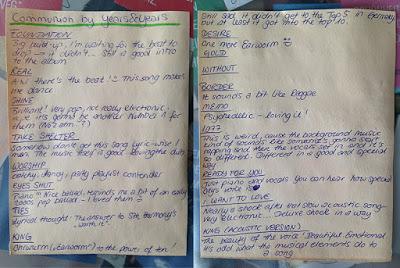 Communion by Years&Years
FOUNDATION
Big build-up, I'm waiting for the beat to
drop → it didn't... Still a good intro
to the album
REAL
Ah! There's the beat! This song makes
me dance
SHINE
Brilliant! Very pop, not really electronic,
it's gonna be another Number 1 for
them (No? Erm..?)
TAKE SHELTER
Somehow don't get this song lyric-wise I
mean. The music itself is good loving the
WORSHIP
Catchy, dancy, party playlist contender
EYES SHUT
Piano Nice ballad. Reminds me a bit of an early
2000s pop ballad - I loved them
TIES
Lyrical thought: The answer to Ella Henderson's
KING
Earworm (, Earworm) to the power of ten!
Still sad it didn't get to the Top 5 in Germany
but at least it got into the top 10.
DESIRE
One more Earworm
GOLD
WITHOUT
BORDER
It sounds a bit like Reggae
MEMO
Psychedelic - loving it!
1977
This is weird, cause the background music
kind of sounds like someone's gonna start
rapping and then the vocals set in and it's
so different. Different in a good and special
way
READY FOR YOU
Just piano and vocals. You can hear how special
Olly's voice is
I WANT TO LOVE
Nearly a shock after that slow acoustic song
Very Electronic... Deluxe shock in a way
KING (ACOUSTIC VERSION)
The beauty of the voice! Beautiful. Emotional
It's odd what the musical elements do to
a song